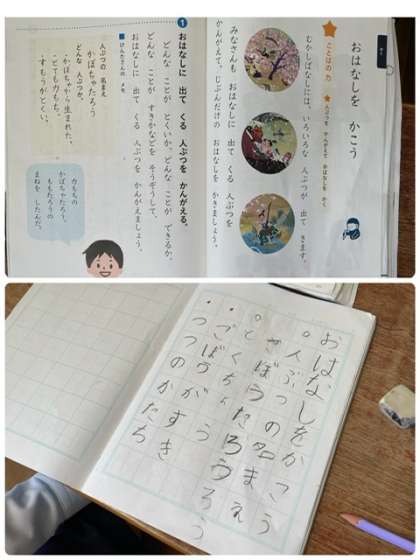 おはなしを かこう
ことばの 力
人ぶつを かんがえて おはなしを かく
むかしばなしには、いろいろな 人ぶつが 出て きます。
みなさんも おはなしに 出て くる 人ぶつを
かんがえて、じぶんだけの おはなしを かきましょう。
1
おはなしに 出て くる 人ぶつを かんがえる。
どんな ことが とくいか、どんな ことが できるか、
どんな ことが すきかなどを そうぞうして、
おはなしに 出て くる 人ぶつを かんがえましょう。
けんたさんの メモ
人ぶつの 名まえ
かぼちゃたろう
どんな 人ぶつか。
・かぼちゃから 生まれた。
・とても 力もち。
・すもうが とくい。
力もちの
かぼちゃたろう。
ももたろうの
まねを したんだ。
おはなしをかこう
人ぶつの名まえ
ごぼうたろう